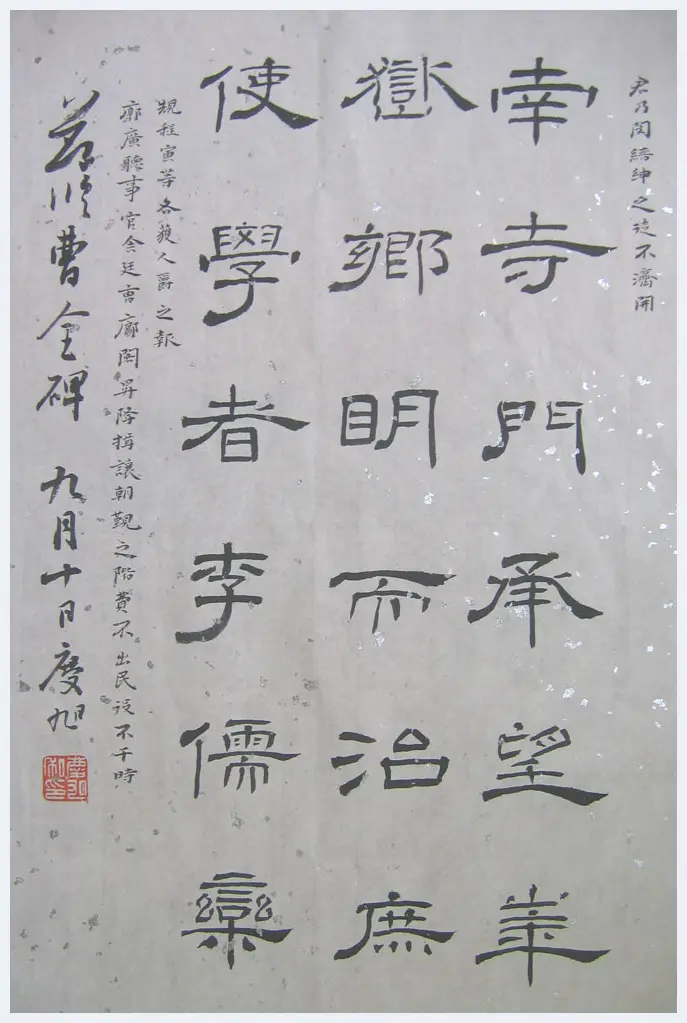 君乃閔縉紳之徒不濟開
南寺門承望華
嶽鄉明而治庶
使學者李儒欒
規程寅等各獲人爵之報
廓廣聽事官舍廷曹廊閣昇降揖讓朝覲之階費不出民役不干時
節臨曹全碑 九月十日慶旭